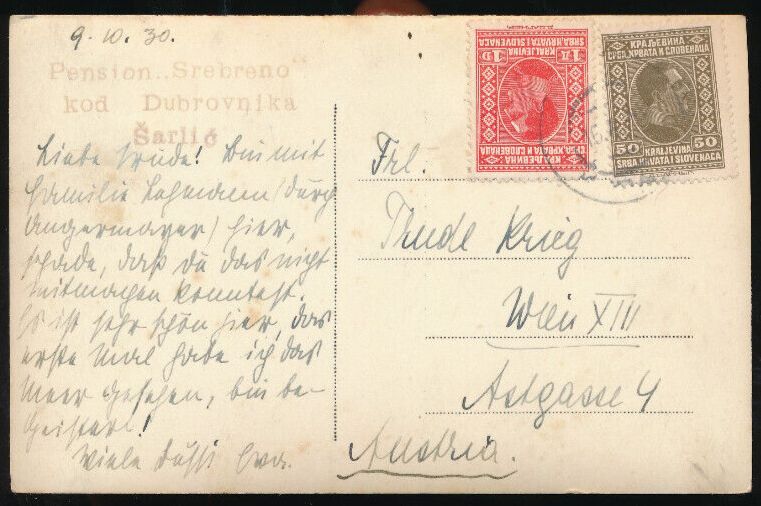 9.10.30.
Pension „Srebreno“
kod Dubrovnika
Šarlić
Liebe Trude! Bin mit
Familie Lehmann (durch
Angermayer) hier,
schade, daß du das nicht
mitmachen konntest.
Es ist sehr schön hier, das
erste Mal habe ich das
Meer gesehen, bin be-
geistert!
Viele Bussi Eva.
1Д 1D
КРАЉЕВИНА
СРБА, ХРВАТА И СЛОВЕНАЦА
KRALJEVINA
SRBA, HRVATA I SLOVENACA
КРАЉЕВИНА
СРБА, ХРВАТА И СЛОВЕНАЦА
50 50
KRALJEVINA
SRBA, HRVATA I SLOVENACA
Frl.
Trude Krieg
Wien XIII
Astgasse 4
Austria.